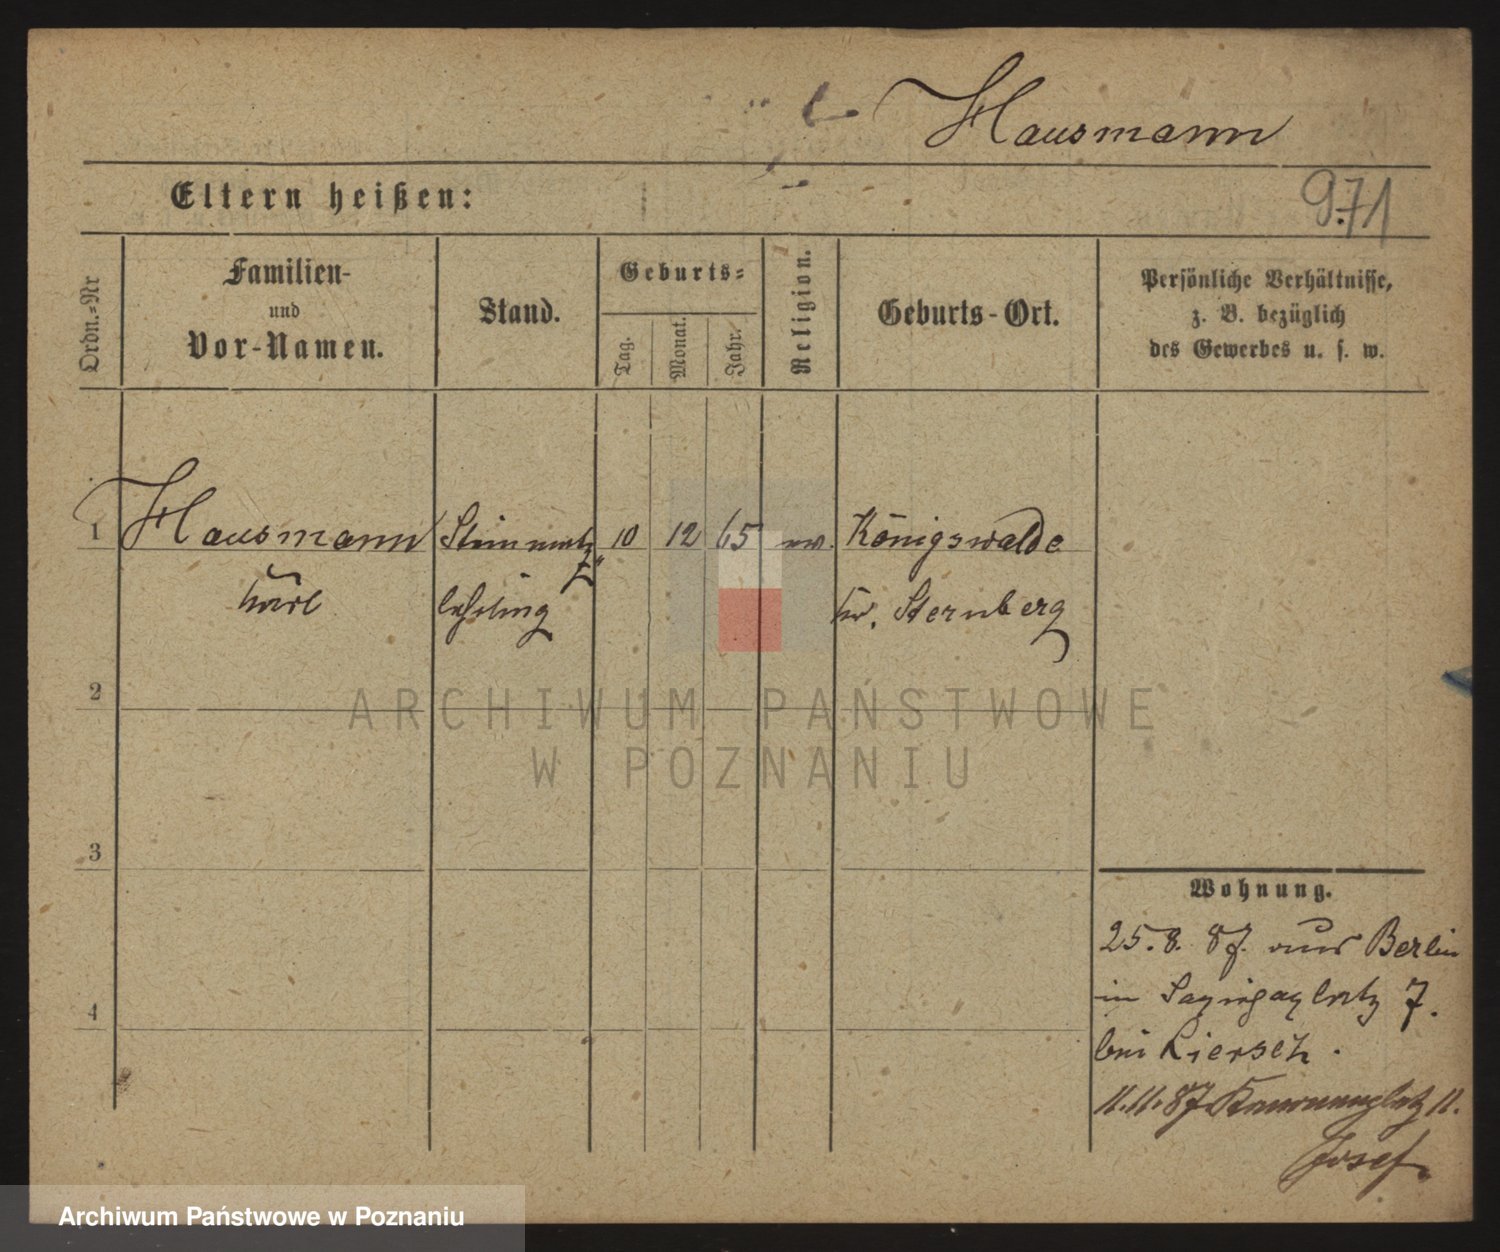 Hausmann
Eltern heißen:
971
Ordn.=Nr
Familien-
und
Vor-Namen.
Stand.
Geburts=
Tag.
Monat.
Jahr.
Religion.
Geburts-Ort.
Persönliche Verhältnisse,
z. B. bezüglich
des Gewerbes u. s. w.
1 Hausmann Steinmetz 10 12 65 ev. Königswalde
Karl lehrling Kr. Sternberg
2
ARCHIWUM PAŃSTWOWE
W POZNANIU
3
Wohnung.
25.8.87. aus Berlin
in Sapiehaplatz 7.
bei Kiersch.
4
11.11.87 11.
Josef
Archiwum Państwowe w Poznaniu